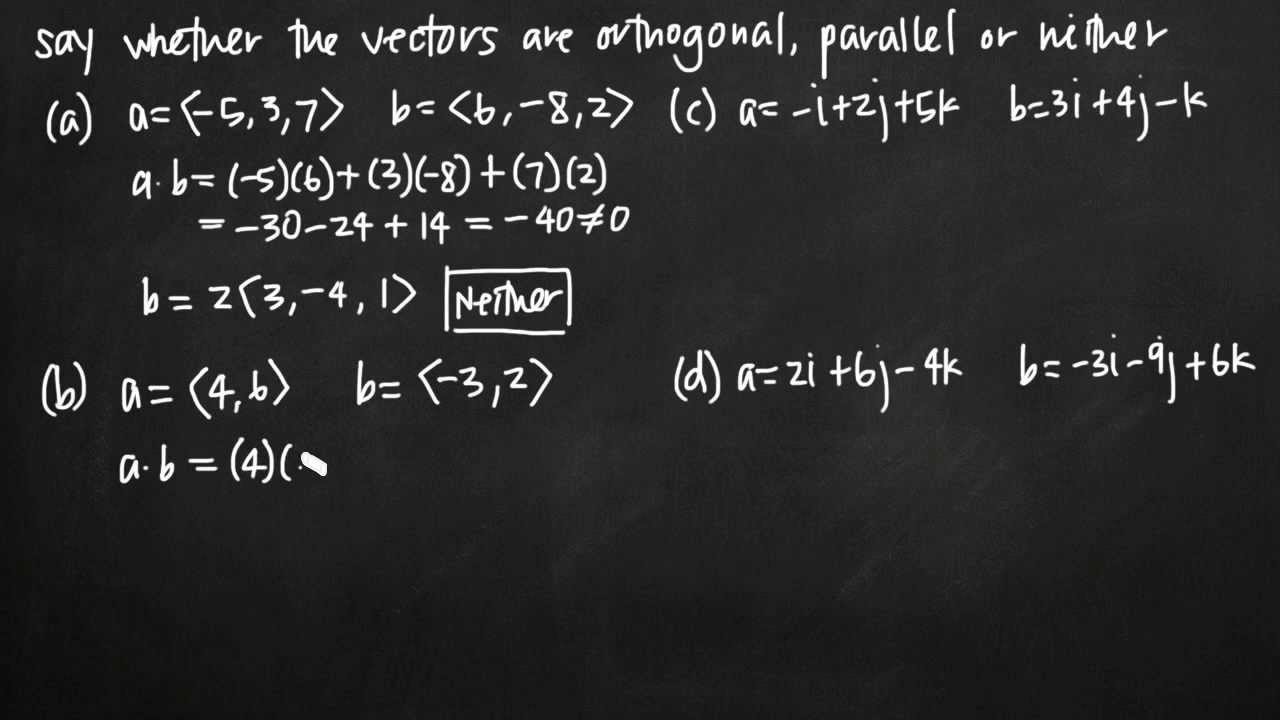 say whether the vectors are orthogonal, parallel or neither
(a) a=⟨-5,3,7⟩ b=<6,-8,2>
a·b=(-5)(6)+(3)(-8)+(7)(2)
=-30-24+14=-40≠0
b=2⟨3,-4,1⟩ Neither
(b) a=⟨4,6⟩ b=⟨-3,2⟩
a·b=(4)(-
(c) a=-i+2j+5k b=3i+4j-k
(d) a=2i+6j-4k b=-3i-9j+6k